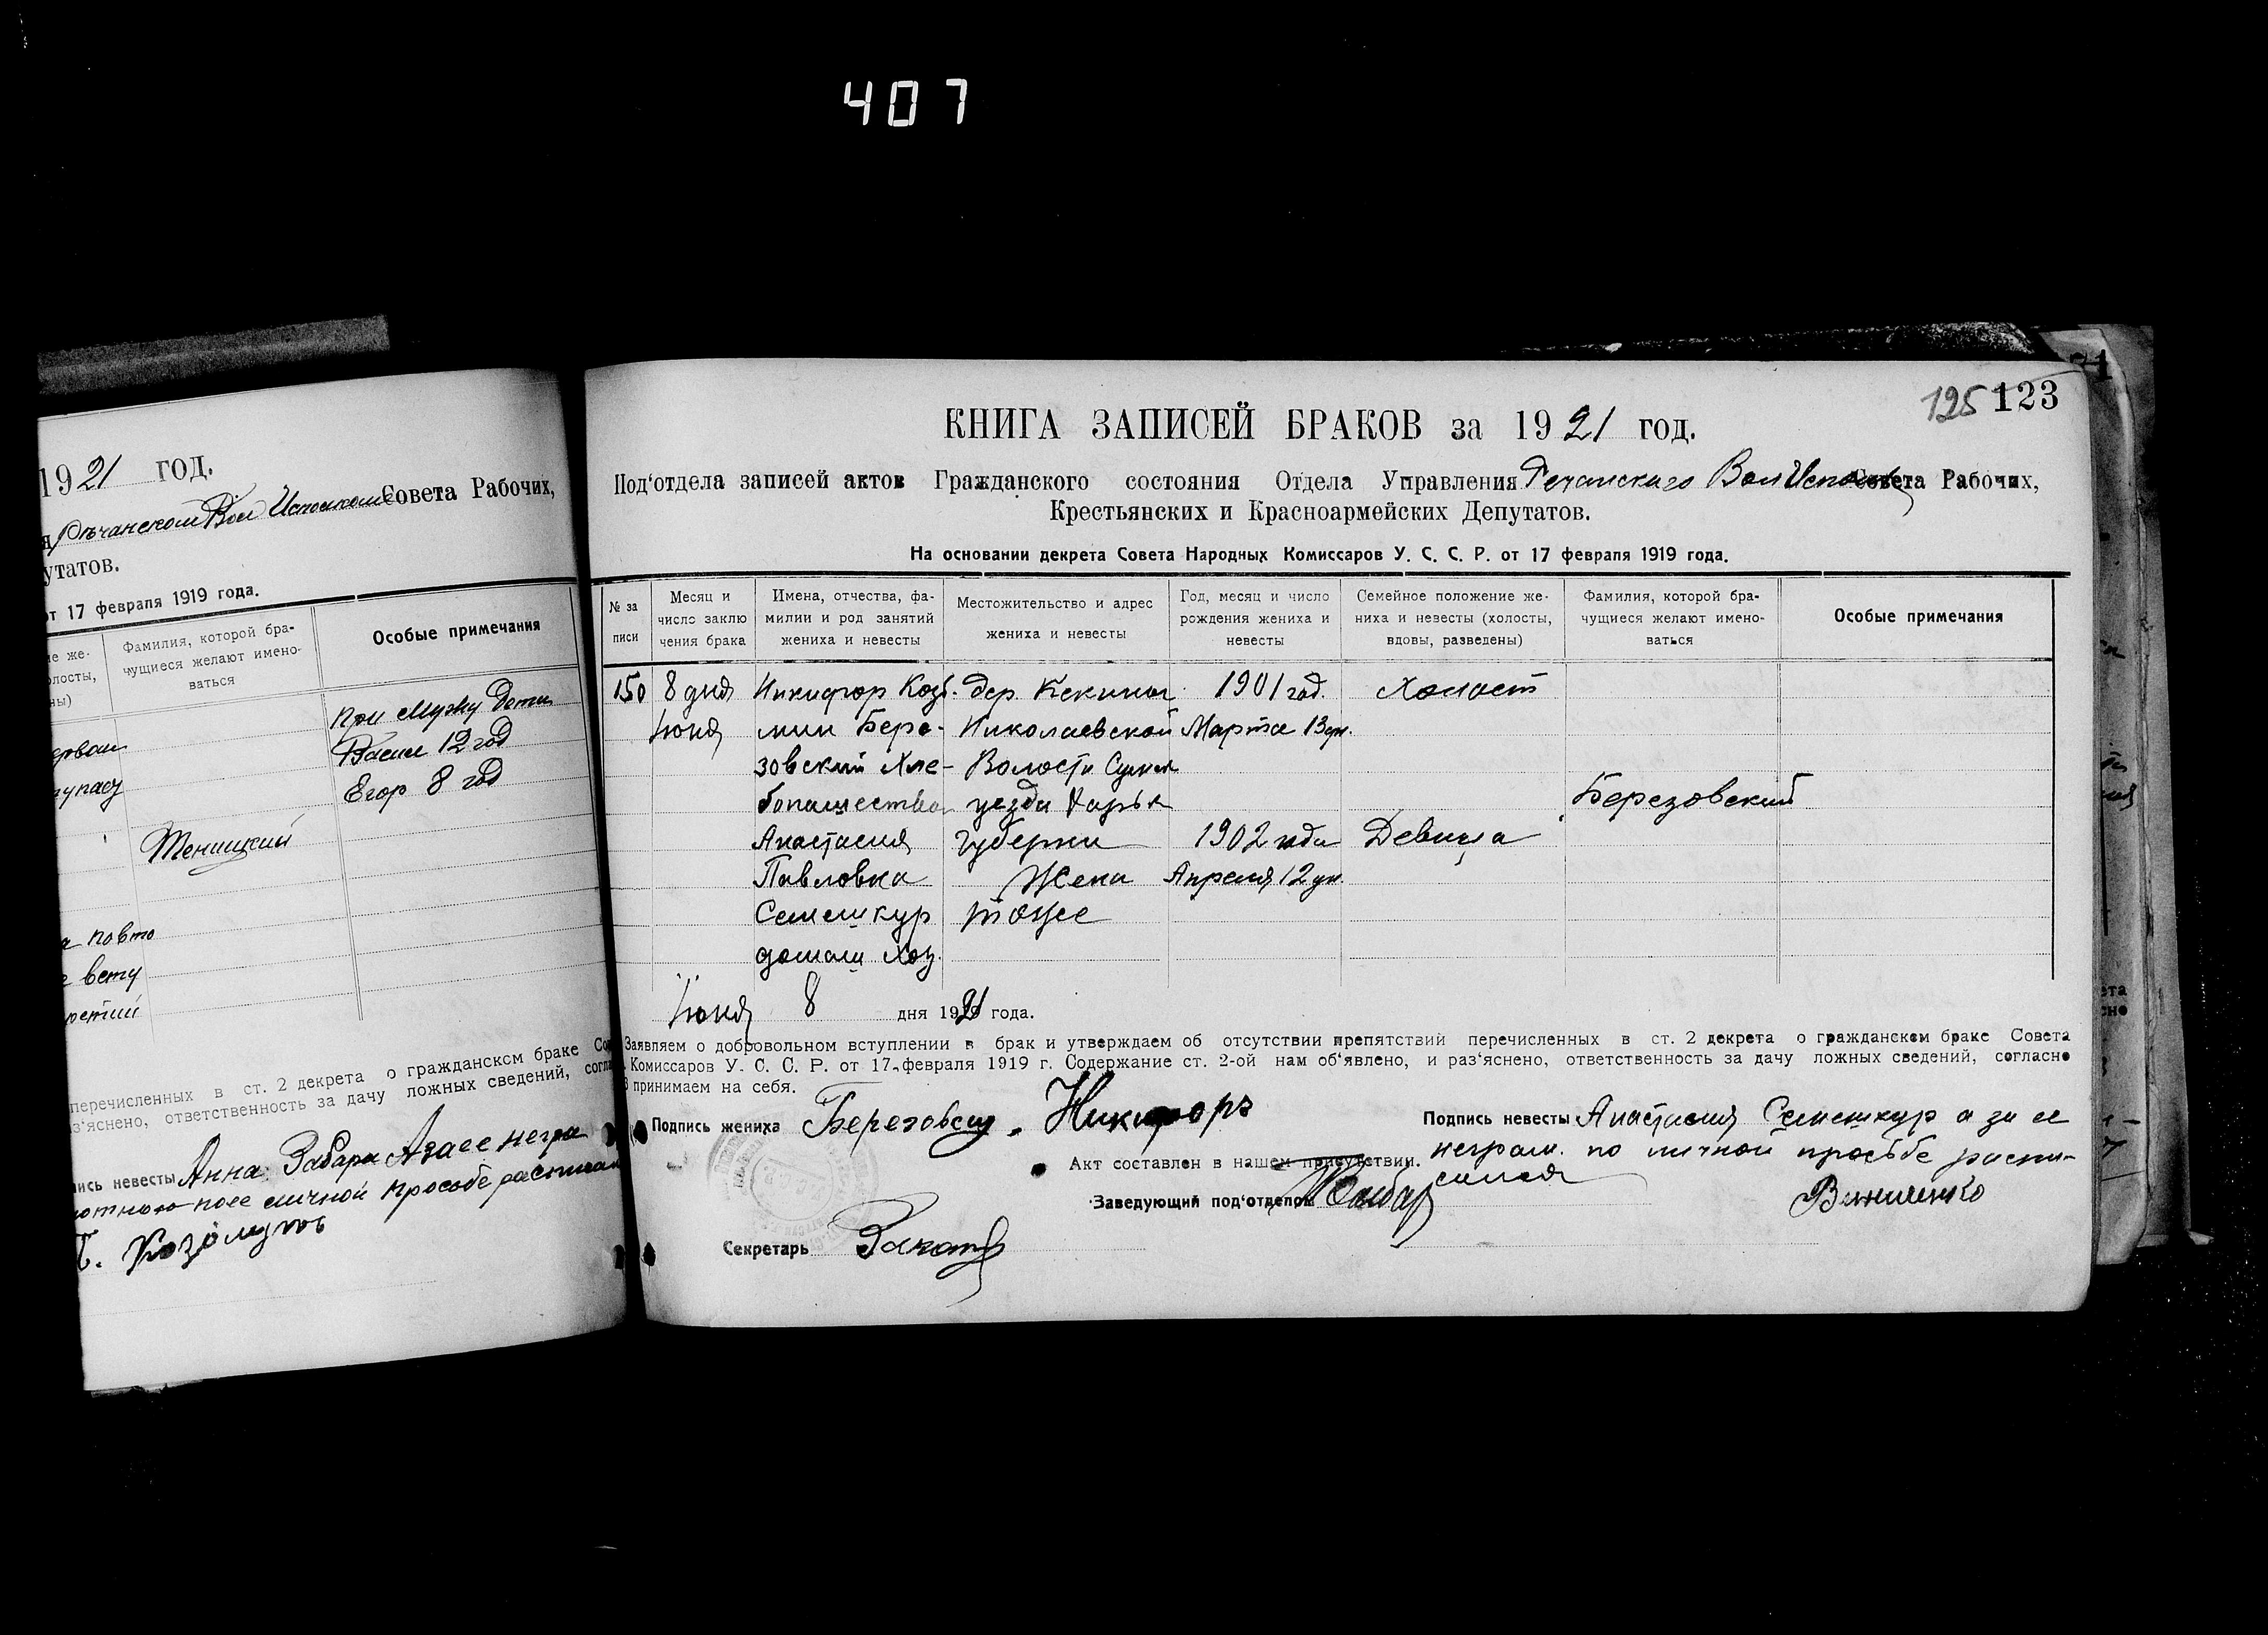 407
1921 год.
Речанском Вол Исполкоме Совета Рабочих,
утатов.
от 17 февраля 1919 года.
Фамилия, которой бра-
чущиеся желают имено-
ваться
Особые примечания
при мужу дети
Васил 12 год
Егор 8 год
а повто
перечисленных в ст. 2 декрета о гражданском браке
з'яснено, ответственность за дачу ложных сведений,
невесты Анна Забара А за ее негра
личной просьбе
125 123
КНИГА ЗАПИСЕЙ БРАКОВ за 1921 год.
Под'отдела записей актов Гражданского состояния Отдела Управления Речанскаго Вол Исполк Совета Рабочих,
Крестьянских и Красноармейских Депутатов.
На основании декрета Совета Народных Комиссаров У. С. С. Р. от 17 февраля 1919 года.
№ за
писи
Месяц и
число заклю
чения брака
Имена, отчества, фа-
милии и род занятий
жениха и невесты
Местожительство и адрес
жениха и невесты
Год, месяц и число
рождения жениха и
невесты
Семейное положение же-
ниха и невесты (холосты,
вдовы, разведены)
Фамилия, которой бра-
чущиеся желают имено-
ваться
Особые примечания
150 8 дня Никифор Козь- дер. Кекина 1901 год. Холост
Июня мин Бере- Николаевской Марта 13 дн.
зовский Хле- Волости Сумск
бопашество уезда Харьк Березовский
Анастасия губерни 1902 года Девица
Павловка Жена Апреля 12 дн
Семешкур тоже
домаш хоз.
Июня 8 дня 1921 года.
Заявляем о добровольном вступлении в брак и утверждаем об отсутствии препятствий перечисленных в ст. 2 декрета о гражданском браке Совета
Комиссаров У. С. С. Р. от 17 февраля 1919 г. Содержание ст. 2-ой нам об'явлено, и раз'яснено, ответственность за дачу ложных сведений, согласно
3 принимаем на себя.
Подпись жениха Березовский Никифоръ
Подпись невесты Анастасия Семешкур а за ее
неграм. по личной просьбе распи-
сался
Винниченко
Акт составлен в нашем присутствии.
Заведующий под'отделом
Секретарь